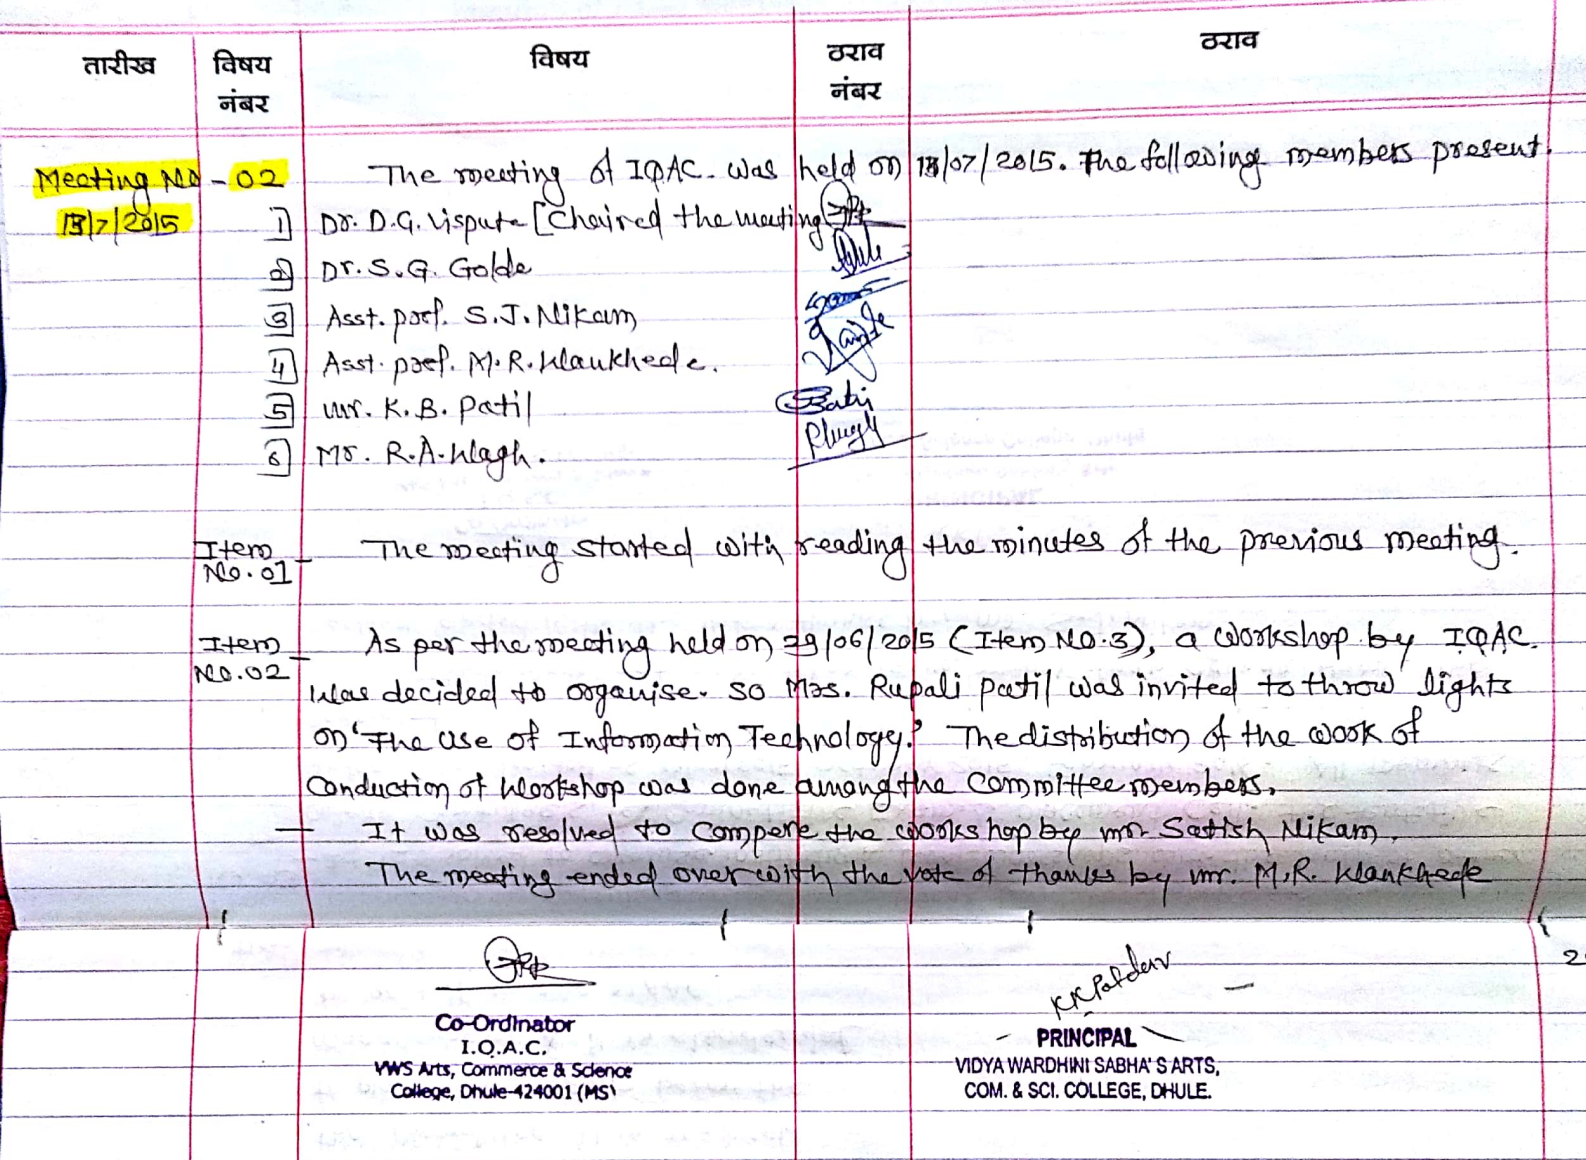 तारीख विषय नंबर विषय ठराव नंबर ठराव
Meeting No - 02 The meeting of IQAC. was held on 13/07/2015. The following members present.
13/7/2015 1] Dr. D.G. Vispute [Chaired the meeting]
2] Dr. S. G. Golde
3] Asst. prof. S.J. Nikam
4] Asst. prof. M.R. Wankhede.
5] Mr. K. B. Patil
6] Mr. R.A. Wagh.
Item No. 01 - The meeting started with reading the minutes of the previous meeting.
Item No. 02 - As per the meeting held on 29/06/2015 (Item No. 3), a workshop by IQAC.
was decided to organise. so Mrs. Rupali patil was invited to throw lights
on 'The use of Information Technology.' The distribution of the work of
Conduction of Workshop was done among the Committee members.
— It was resolved to Compere the workshop by Mr Satish Nikam.
The meeting ended over with the vote of thanks by Mr. M.R. Wankhede
Co-Ordinator
I.Q.A.C.
VWS Arts, Commerce & Science
College, Dhule-424001 (MS)
KKPotdar
PRINCIPAL
VIDYA WARDHINI SABHA'S ARTS,
COM. & SCI. COLLEGE, DHULE.